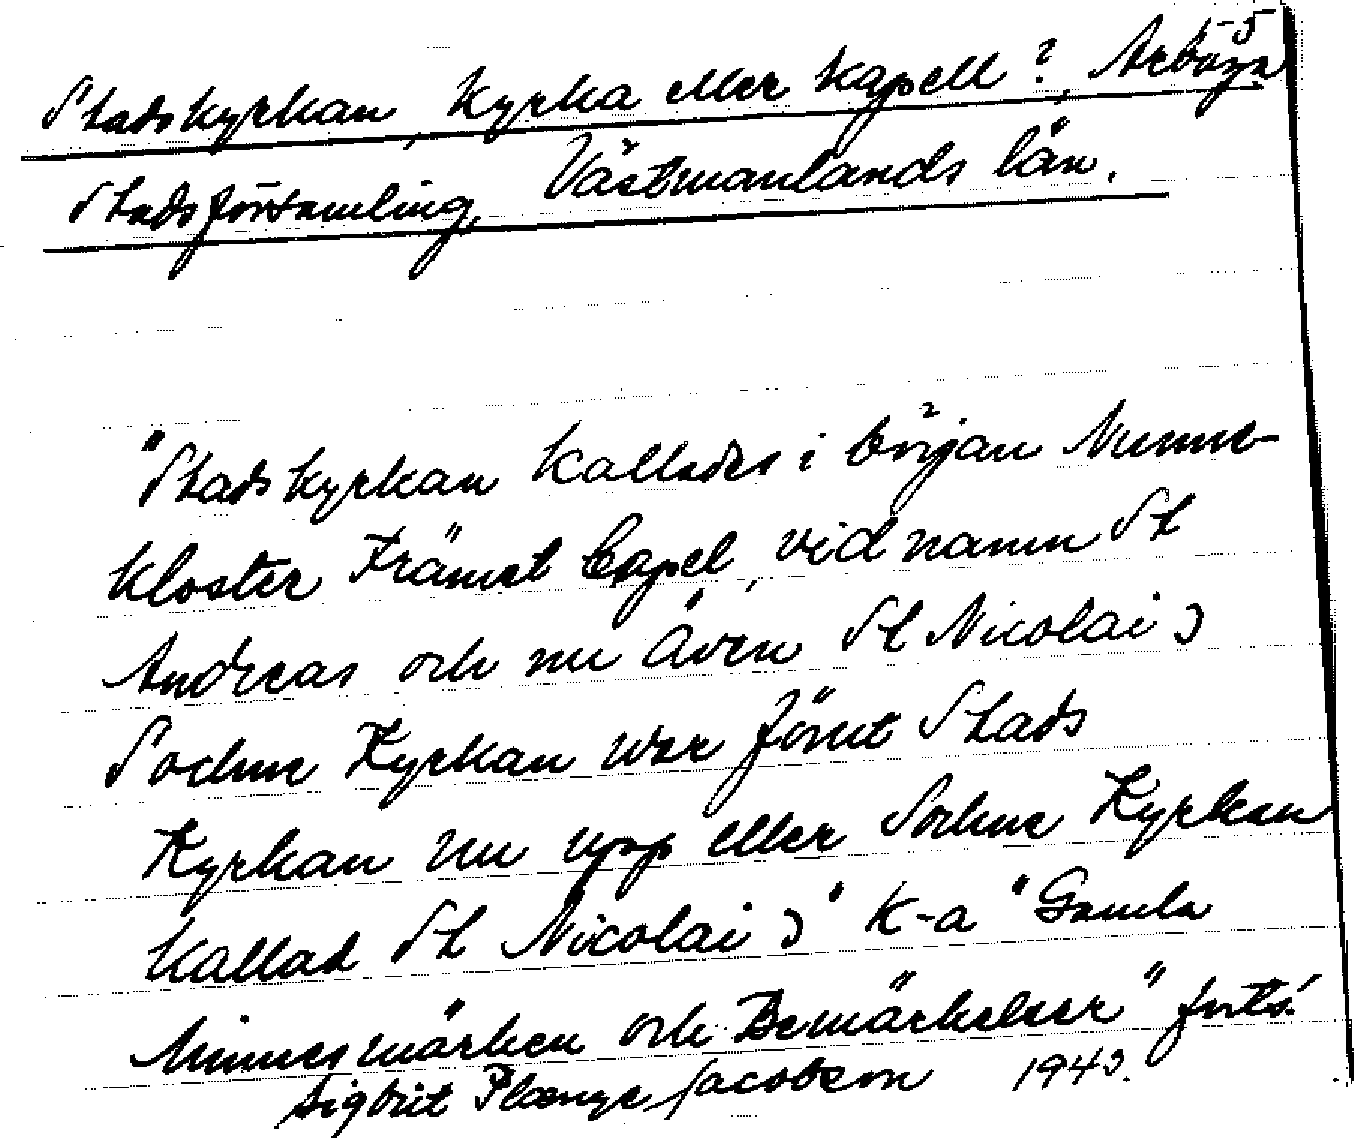 -5
Stadskyrkan, Kyrka eller Kapell?, Arboga
Stadsförsamling, Västmanlands län.
"Stadskyrkan Kallades i början Munne-
Kloster Främst Capel, vid namn St
Andreas och nu även St Nicolai)
Sochne Kyrkan war förut Stads
Kyrkan nu upp eller Sochne Kyrkan
Kallad St Nicolai)" K-a "Gamla
Minnesmärken och Bemärkelser" forts.
Sigbrit Plænge Jacobson 1943.